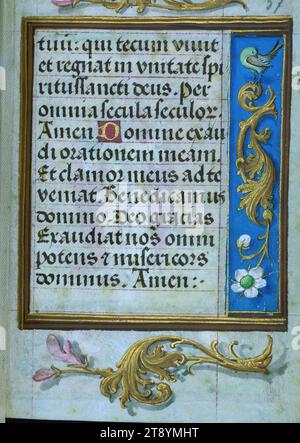 tuu: qui tecum viuit
et regnat in vnitate spi
ritussancti deus. Per
omnia secula seculor.
Amen Domine exau
di orationem meam.
Et clamor meus ad te
veniat. Benedicamus
domino. Deo gracias
Exaudiat nos omni
potens & misericors
dominus. Amen:-
alamy
Image ID: 2T8YMHT
www.alamy.com